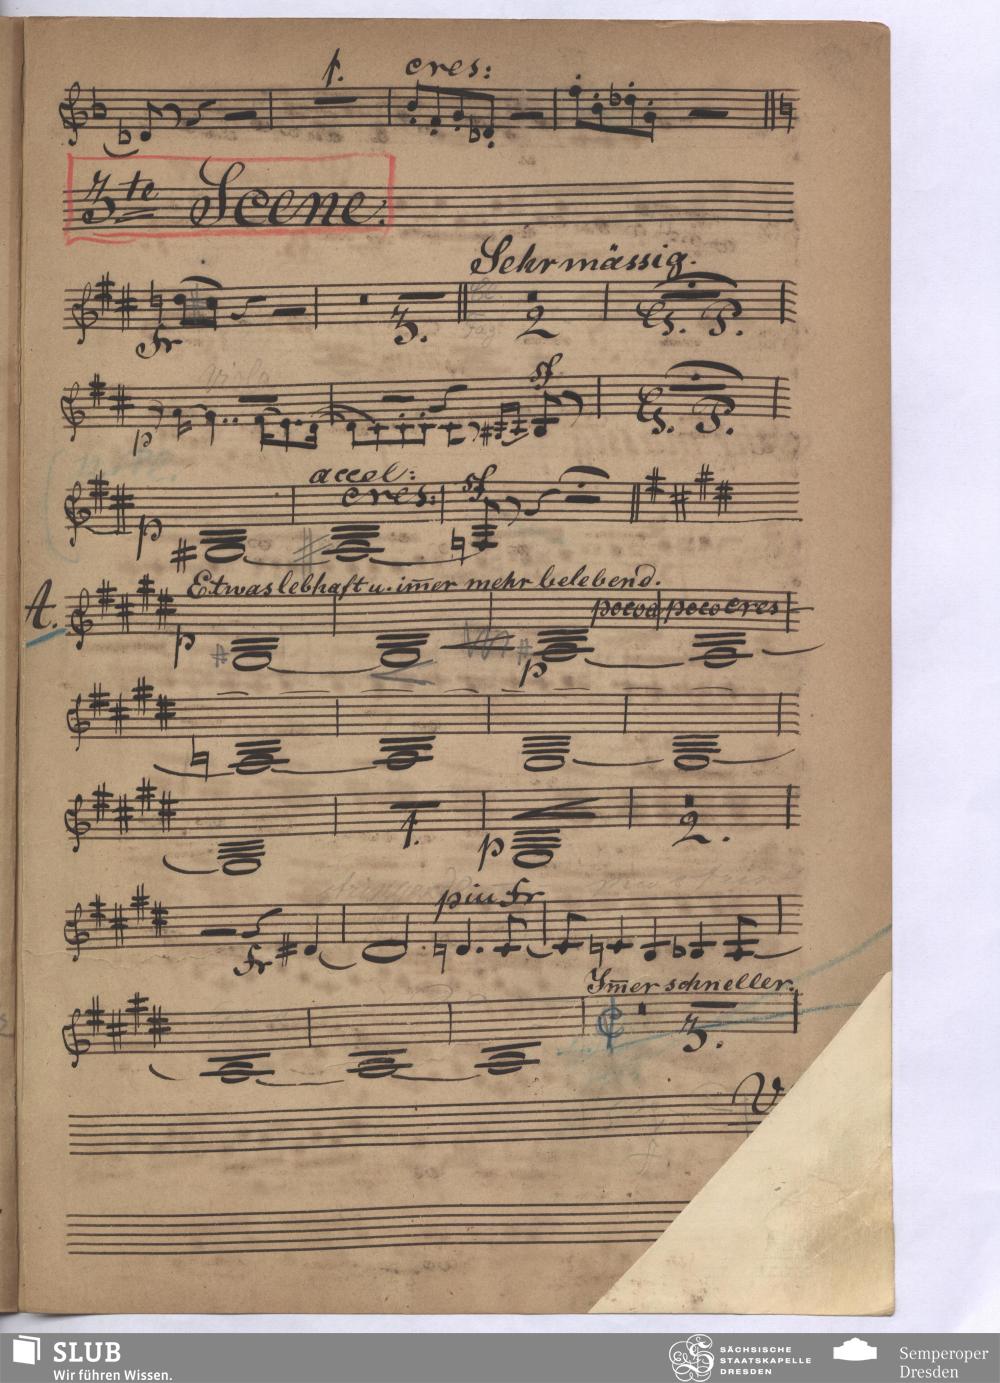 1. cres:
3te Scene.
Sehr mässig.
Fr 3. 2 G. P.
Viola
sf
p G. P.
accel:
cres: sf
p
A. Etwas lebhaft u. im̅er mehr belebend.
poco a poco cres
p p
1. p 2.
più fr
Fr
Im̅er schneller.
3.
V
SLUB
Wir führen Wissen.
SÄCHSISCHE
STAATSKAPELLE
DRESDEN
Semperoper
Dresden